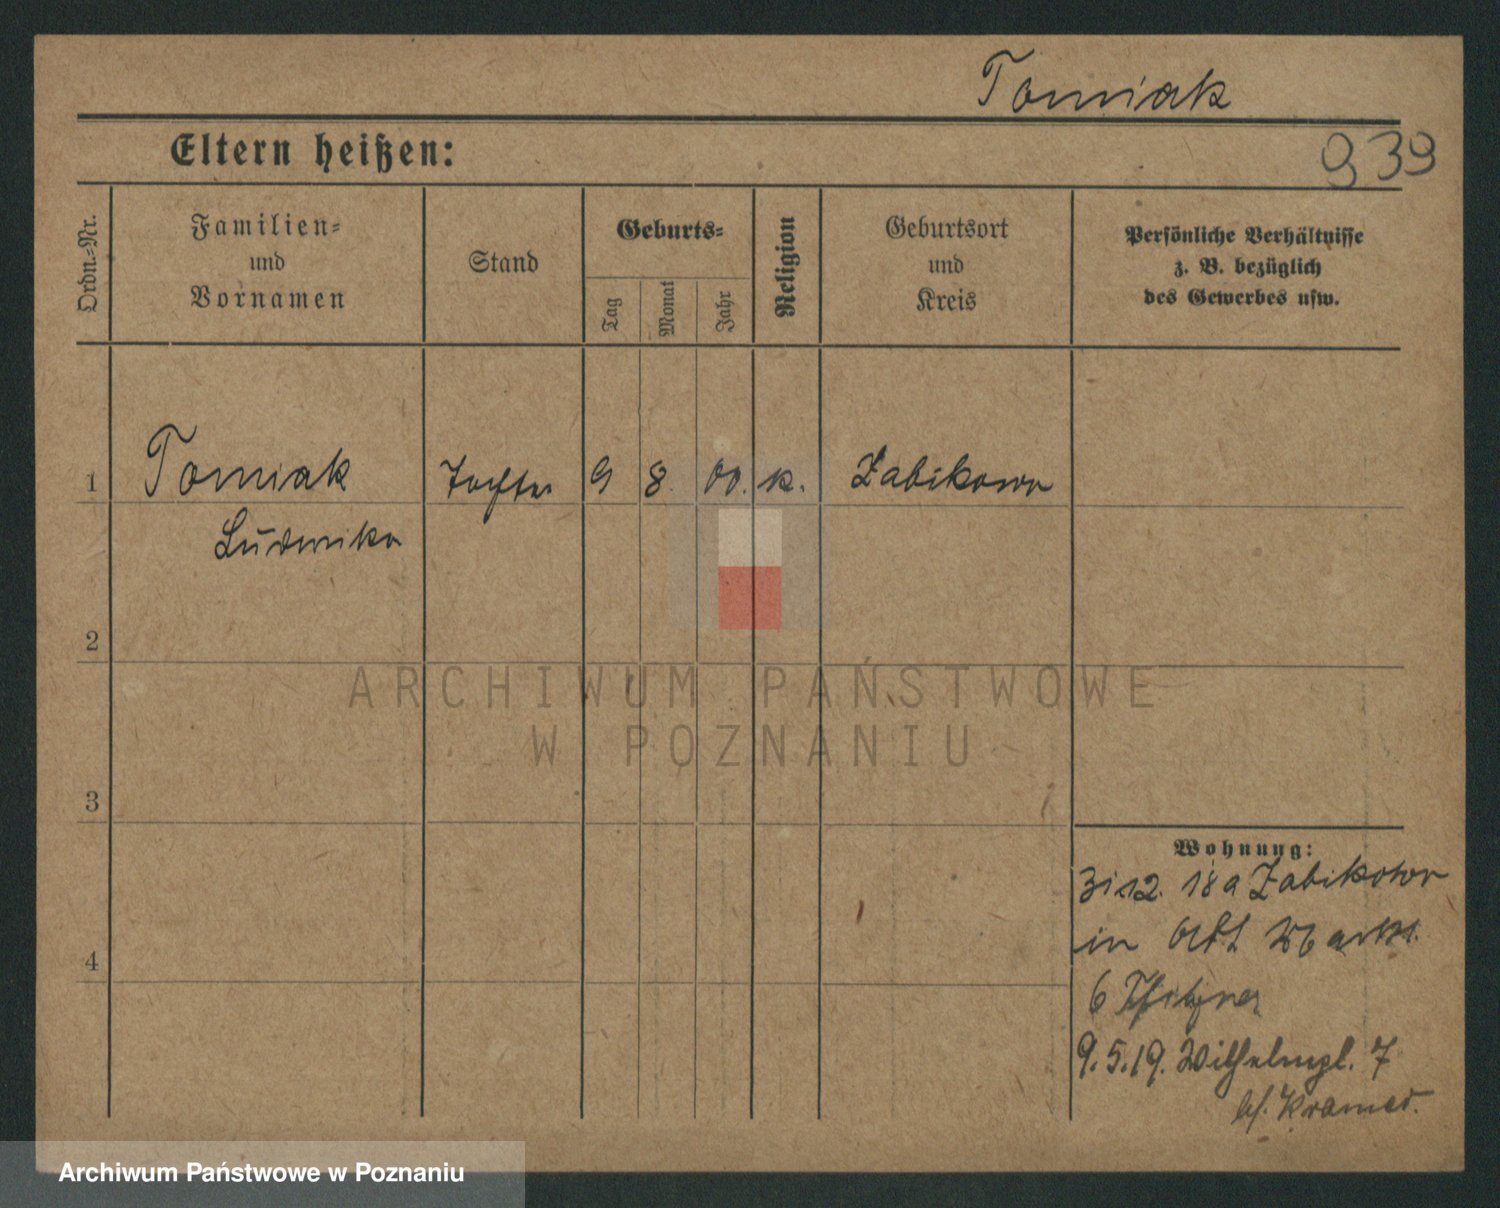 Tomiak
939
Eltern heißen:
Ordn.-Nr.
Familien-
und
Vornamen
Stand
Geburts-
Tag
Monat
Jahr
Religion
Geburtsort
und
Kreis
Persönliche Verhältnisse
z. B. bezüglich
des Gewerbes usw.
1 Tomiak Tochter 9 8. 00. k. Zabikowo
Ludwika
2
3
4
Wohnung:
18 a Zabikowo
in Alt Markt
6
9.5.19. Wilhelmpl. 7
bf. Kramer.
ARCHIWUM PAŃSTWOWE
W POZNANIU
Archiwum Państwowe w Poznaniu